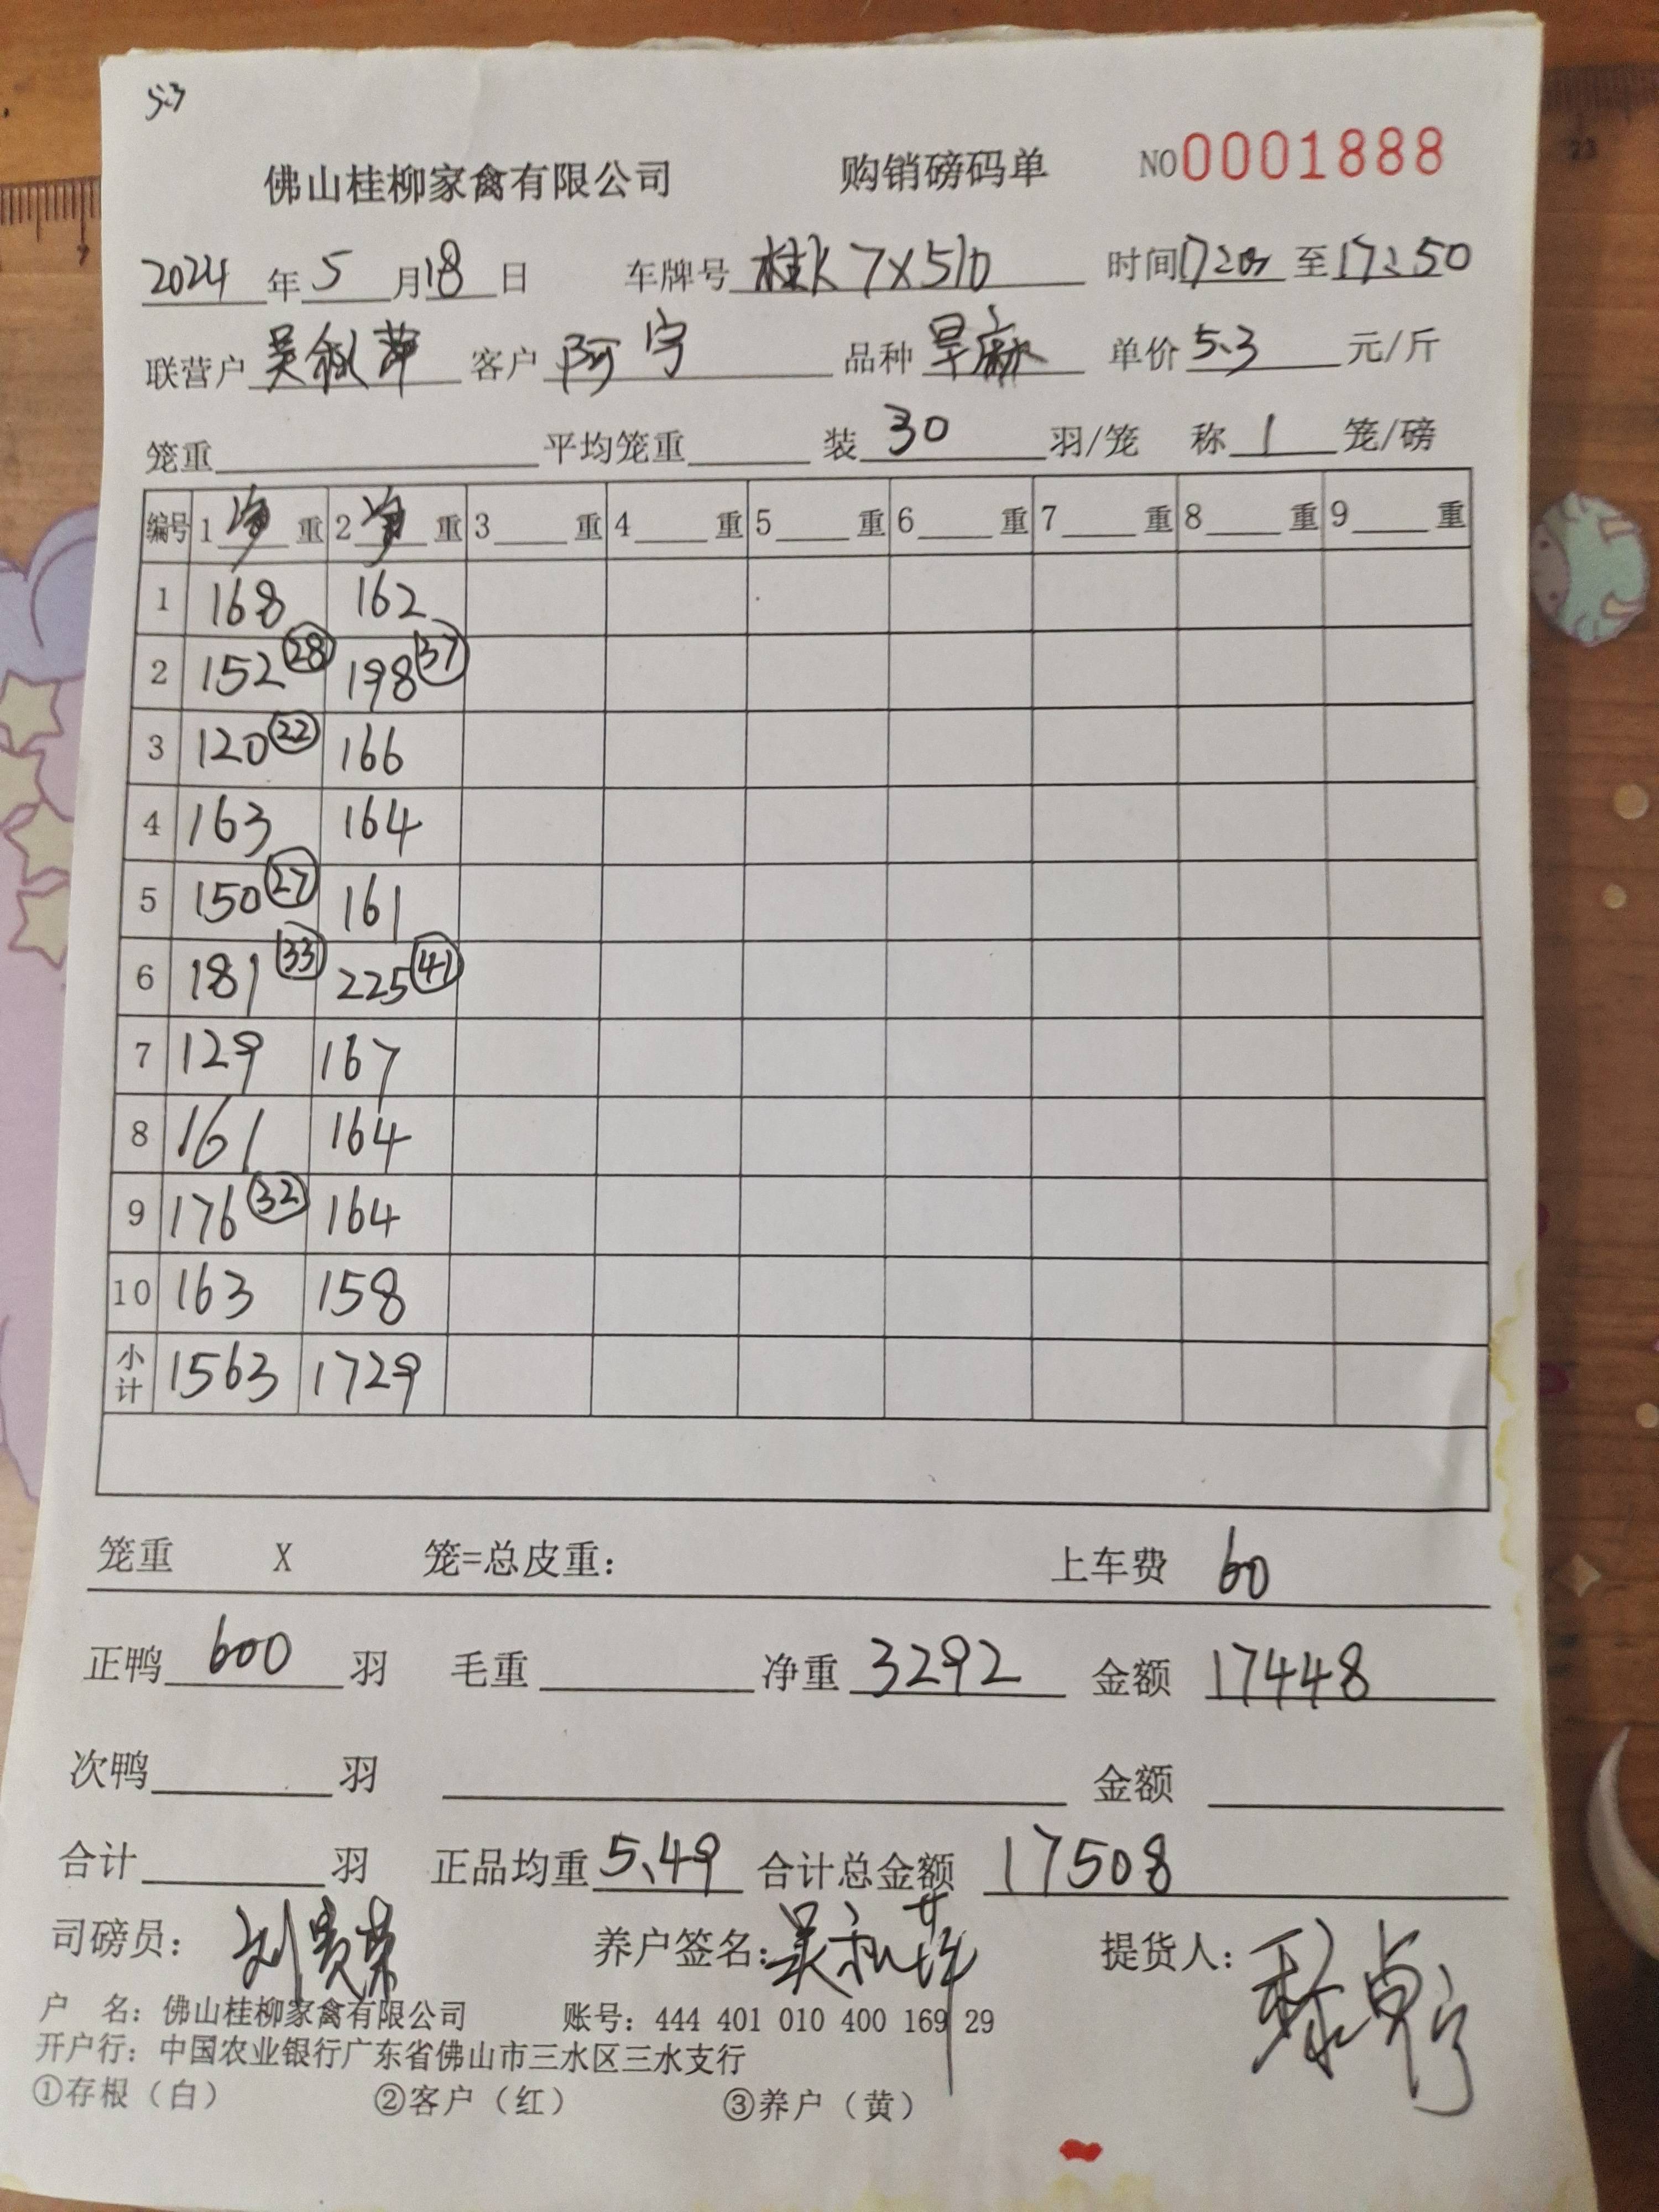 5.3
佛山桂柳家禽有限公司 购销磅码单 NO 0001888
2024 年 5 月 18 日 车牌号 桂K 7X510 时间 17:20 至 17:50
联营户 吴秋萍 客户 阿宇 品种 早麻 单价 5.3 元/斤
笼重 平均笼重 装 30 羽/笼 称 1 笼/磅
编号 1 净 重 2 净 重 3 重 4 重 5 重 6 重 7 重 8 重 9 重
1 168 162
2 152 (28) 198 (37)
3 120 (22) 166
4 163 164
5 150 (27) 161
6 181 (33) 225 (41)
7 129 167
8 161 164
9 176 (32) 164
10 163 158
小计 1563 1729
笼重 X 笼=总皮重: 上车费 60
正鸭 600 羽 毛重 净重 3292 金额 17448
次鸭 羽 金额
合计 羽 正品均重 5.49 合计总金额 17508
司磅员: 养户签名: 吴秋萍 提货人:
户 名: 佛山桂柳家禽有限公司 账号: 444 401 010 400 169 29
开户行: 中国农业银行广东省佛山市三水区三水支行
①存根（白） ②客户（红） ③养户（黄）